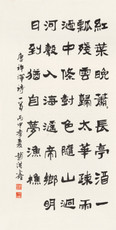 紅葉晚蕭蕭長亭酒一
瓢殘雲歸太華疎雨
過中條樹色隨山迥
河聲入海遙帝鄉明
日到猶自夢漁樵
唐許渾詩一首丙申